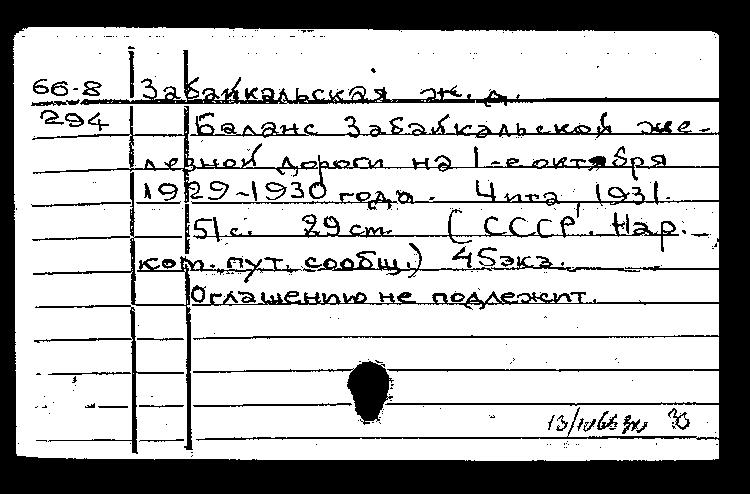 66-8 Забайкальская ж. д.
294 Баланс Забайкальской же-
лезной дороги на 1-е октября
1929-1930 года. Чита, 1931.
51 с. 29 см. (СССР. Нар.
ком. пут. сообщ.) 45 экз.
Оглашению не подлежит.